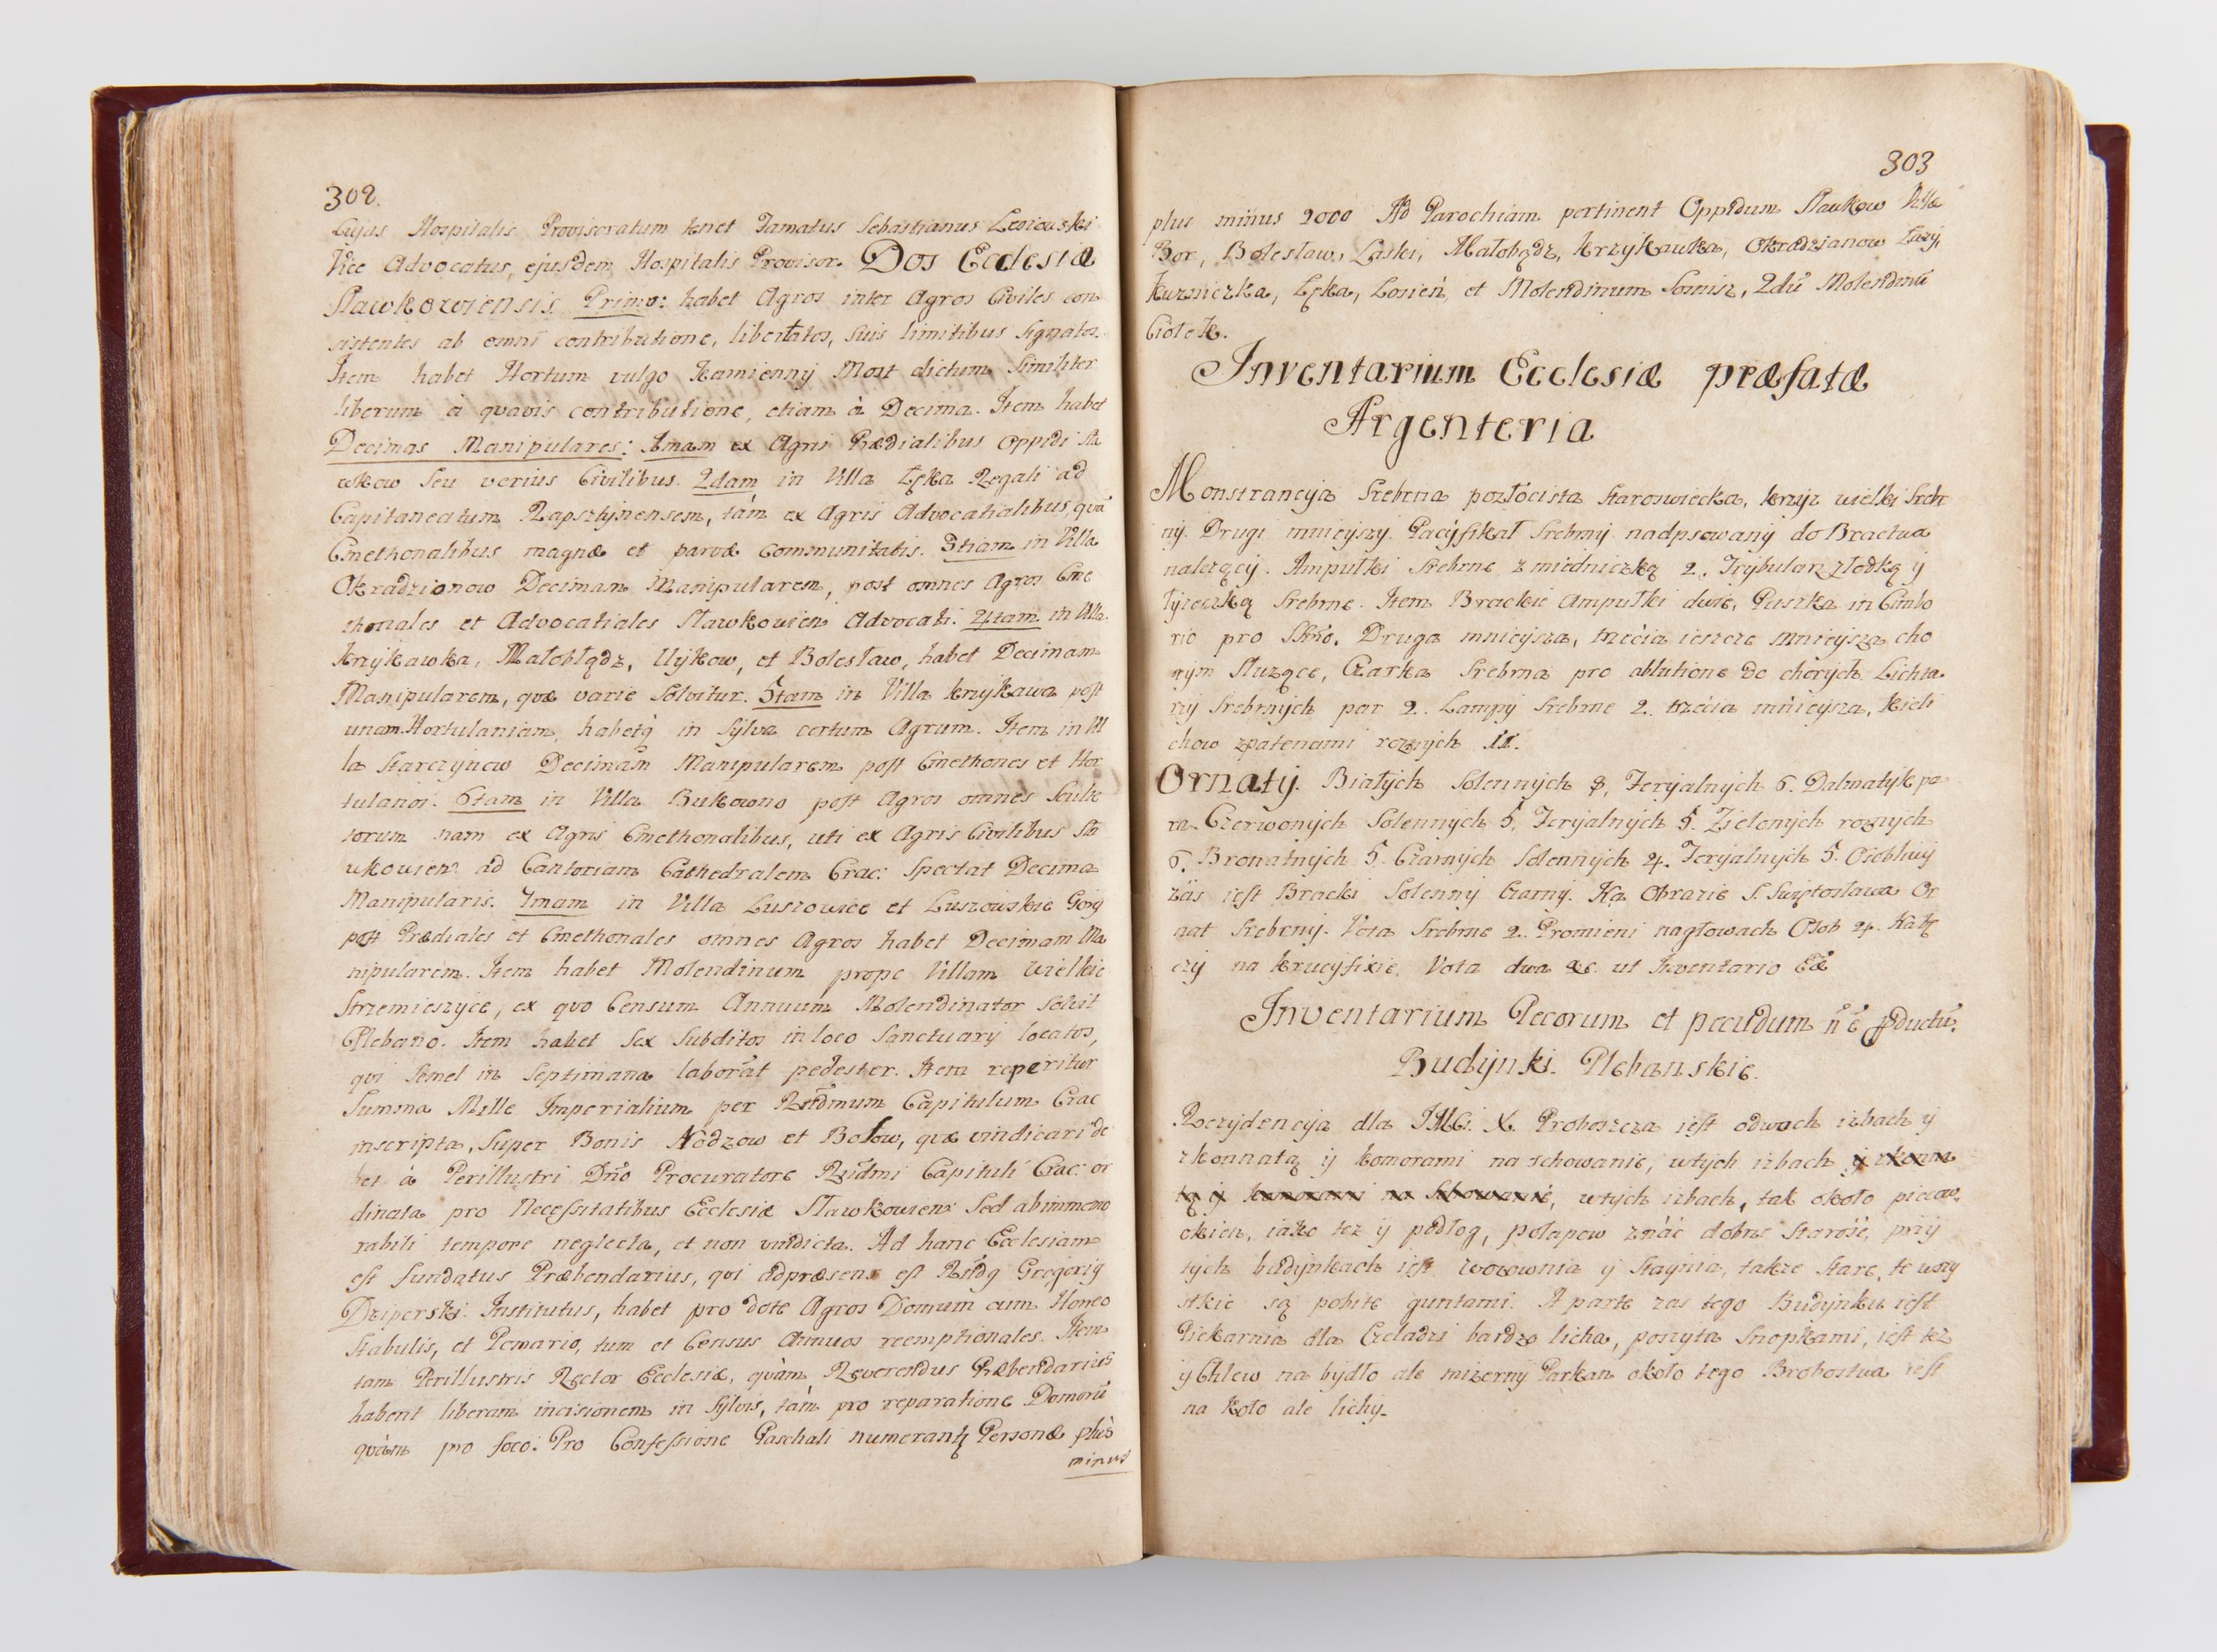 302.
Cujus Hospitalis Provisoratum tenet Famatus Sebastianus
Vice Advocatus, ejusdem Hospitalis Provisor. Dos Ecclesiæ
Slawkowiensis. Primo: habet Agros inter Agros Civiles con
sistentes ab omni contributione, libertatos, suis limitibus signatos.
Item habet Hortum vulgo Kamienny Most dictum similiter
liberum à quavis contributione, etiam à Decima. Item habet
Decimas Manipulares: 1mam ex Agris Prædialibus Oppidi Sła
wkow seu verius Civilibus. 2dam in Villa Łęka Regali ad
Capitaneatum Rapsztynensem, tám ex Agris Advocatialibus, quā
Cmethonalibus magnæ et parvæ Communitatis. 3tiam in Villa
Okradzionow Decimam Manipularem, post omnes Agros Cme
thonales et Advocatiales Sławkowien: Advocati. 4tam in Villa
Krzykawka, Małobłądz, Uykow, et Bolesław, habet Decimam
Manipularem, quæ varie solvitur. 5tam in Villa Krzykawa post
unam Hortulaniam, habetq̀ in Sylva certum Agrum. Item in Vil
la Starczynow Decimam Manipularem post Cmethones et Hor
tulanos. 6tam in Villa Bukowno post Agros omnes Scult
torum nam ex Agris Cmethonalibus, uti ex Agris Civilibus Sła
wkowien: ad Cantoriam Cathedralem Crac: spectat Decima
Manipularis. 7mam in Villa Luszowice et Luszowskie Gory
post Prædiales et Cmethonales omnes Agros habet Decimam Ma
nipularem. Item habet Molendinum prope Villam Wielkie
Strzemieszyce, ex quo Censum Annuum Molendinator solvit
Plebano. Item habet sex subditos in loco Sanctuarij locatos,
qui semel in septimana laborāt pedester. Item reperitur
Summa Mille Imperialium per Rndmum Capitulum Crac
inscripta, super Bonis Nodzow et Bołow, quæ vindicari de
bet à Perillustri Dño Procuratore Rndmi Capituli Crac: or
dinata pro Necessitatibus Ecclesiæ Sławkowien: Sed ab immemo
rabili tempore neglecta, et non vindicta. Ad hanc Ecclesiam
est fundatus Præbendarius, qui adpræsens est Rndq Gregorig
Dziperski. Institutus, habet pro dote Agros Domum cum Horreo
Stabulis, et Pomario, tum et Census Annuos reemptionales. Item
tam Perillustris Rector Ecclesiæ, quàm Reverendus Præbendarius
habent liberam incisionem in Sylvis, tám pro reparatione Domorū
quàm pro foco. Pro Confessione Paschali numerantr Personæ plùs
minus
303
plus minus 2000 Ad Parochiam pertinent Oppidum Sławkow Villa
Bor, Bolesław, Laski, Małobądz, Krzykawka, Okradzianow Łazy,
Kuzniczka, Łęka, Łosień, et Molendinum Sosnisz, 2dū Molendinū
Ciołek.
Inventarium Ecclesiæ præfatæ
Argenteria
Monstrancyja Srebrna pozłocista staroswiecka, krzyz wielki Srebr
ny. Drugi mnieyszy. Pacyfikał Srebrny nadpsowany do Bractwa
nalezący. Ampułki Srebrne z miedniczką 2. Trybularz z łodką y
łyzeczką Srebrne. Item Brackie Ampułki dwie, Puszka in Cimbo
rio pro SSmo. Druga mnieysza, trzecia ieszcze mnieysza cho
rym słuzące, Czarka Srebrna pro ablutione do chorych. Lichta
rzy Srebrnych par 2. Lampy Srebrne 2. trzecia mnieysza, Kieli
chow z patenami roznych 11.
Ornaty. Białych Solennych 8, Feryalnych 6. Dalmatyk pa
ra. Czerwonych Solennych 5, Feryalnych 5. Zielonych roznych
6. Bronatnych 5. Czarnych Solennych 4. Feryalnych 5. Osobliwy
zás iest Bracki Solenny Czarny. Na Obrazie S. Swiętosława Or
nat Srebrny. Vota Srebrne 2. Promieni nagłowach Osob 4.
na Krucyfixie. Vota dwa &c. ut Inventario
Inventarium Pecorum et pecudum n̄ ē pductū.
Budynki Plebanskie.
Rezydencyja dla JMCi. X. Proboszcza iest odwoch izbach y
zkonnatą y komorami na schowanie, wtych izbach y zkonna
tą y komorami na schowanie, wtych izbach, tak około piecow,
okien, iako tez y podłog, połapow znáć dobrze starość, przy
tych budynkach iest wozownia y stajnia, takze stare, te wszy
stkie są pobite guntami. A parte zas tego Budynku iest
Piekarnia dla Czeladzi bardzo licha, poszyta snopkami, iest tez
y Chlew na bydło ale mizerny Parkan około tego Probostwa iest
na koło ale lichy.